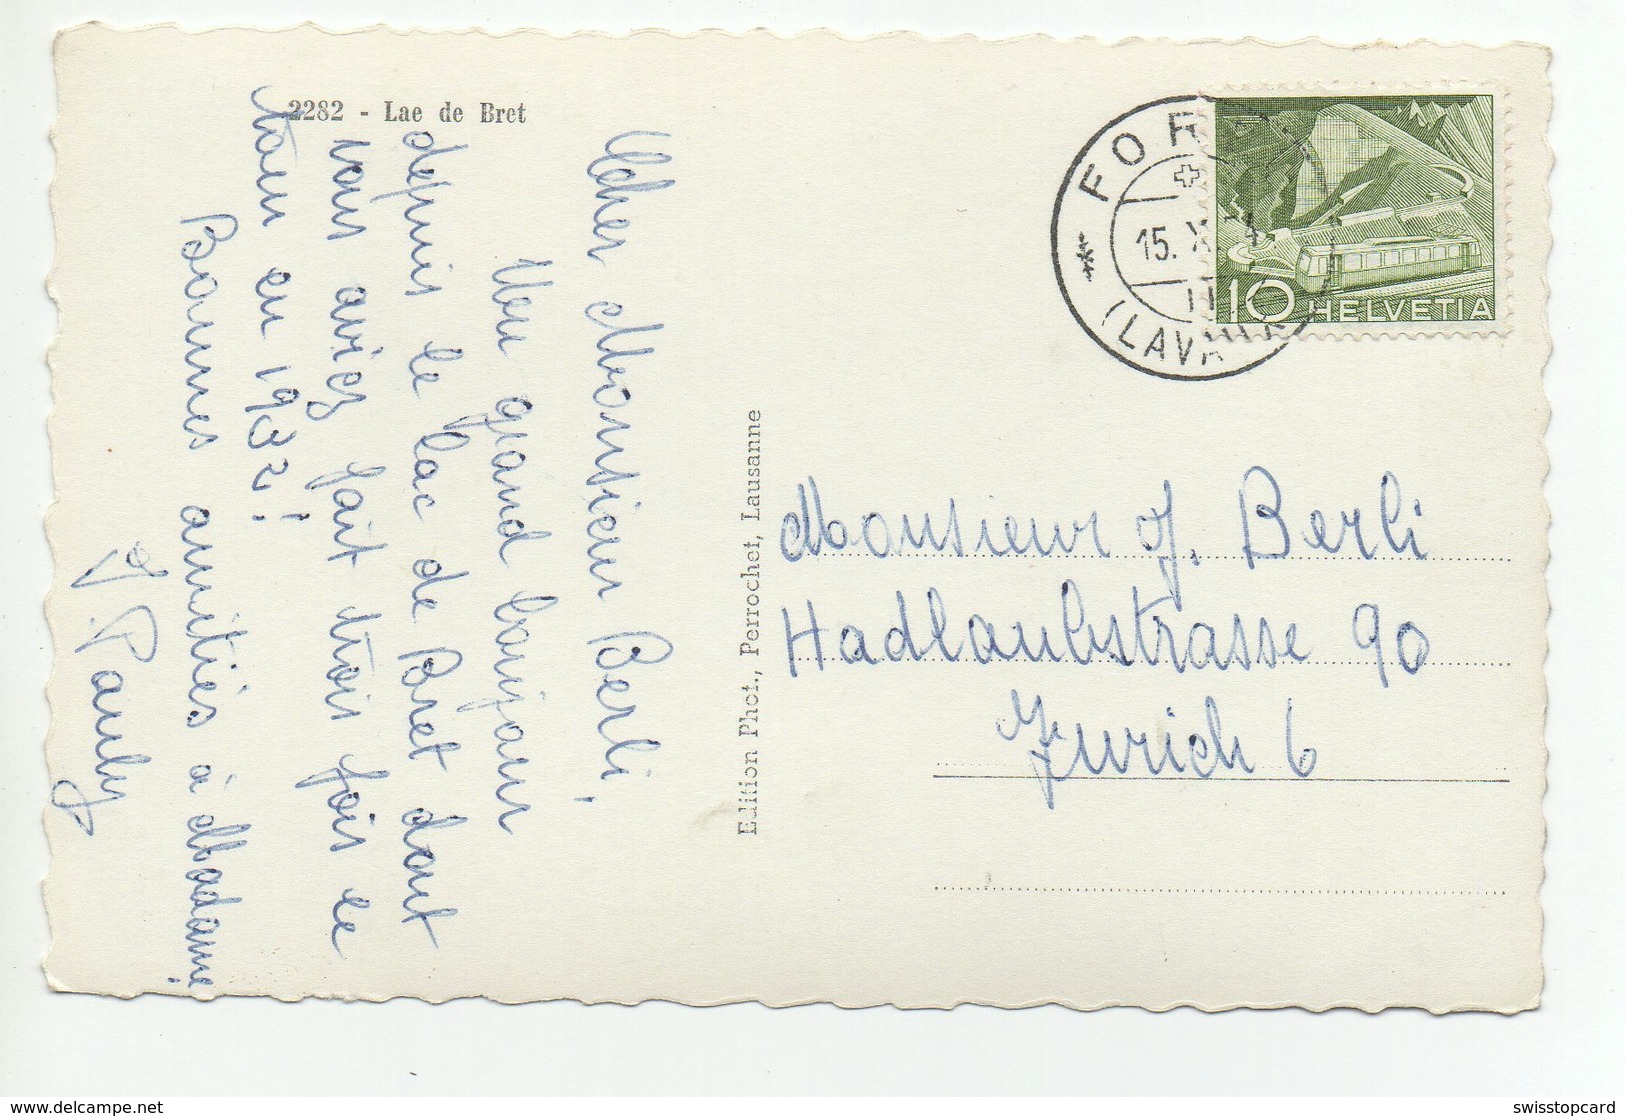 2282 - Lac de Bret
Cher Monsieur Berli,
Un grand bonjour
depuis le lac de Bret dont
vous aviez fait trois fois le
tour en 1932!
Bonnes amitiés à Madame!
J. Pauly
Edition Phot., Perrochet, Lausanne
FOR
15. X
11
(LAVAUX)
10 HELVETIA
Monsieur J. Berli
Hadlaubstrasse 90
Zurich 6
https://www.delcampe.net
swisstopcard